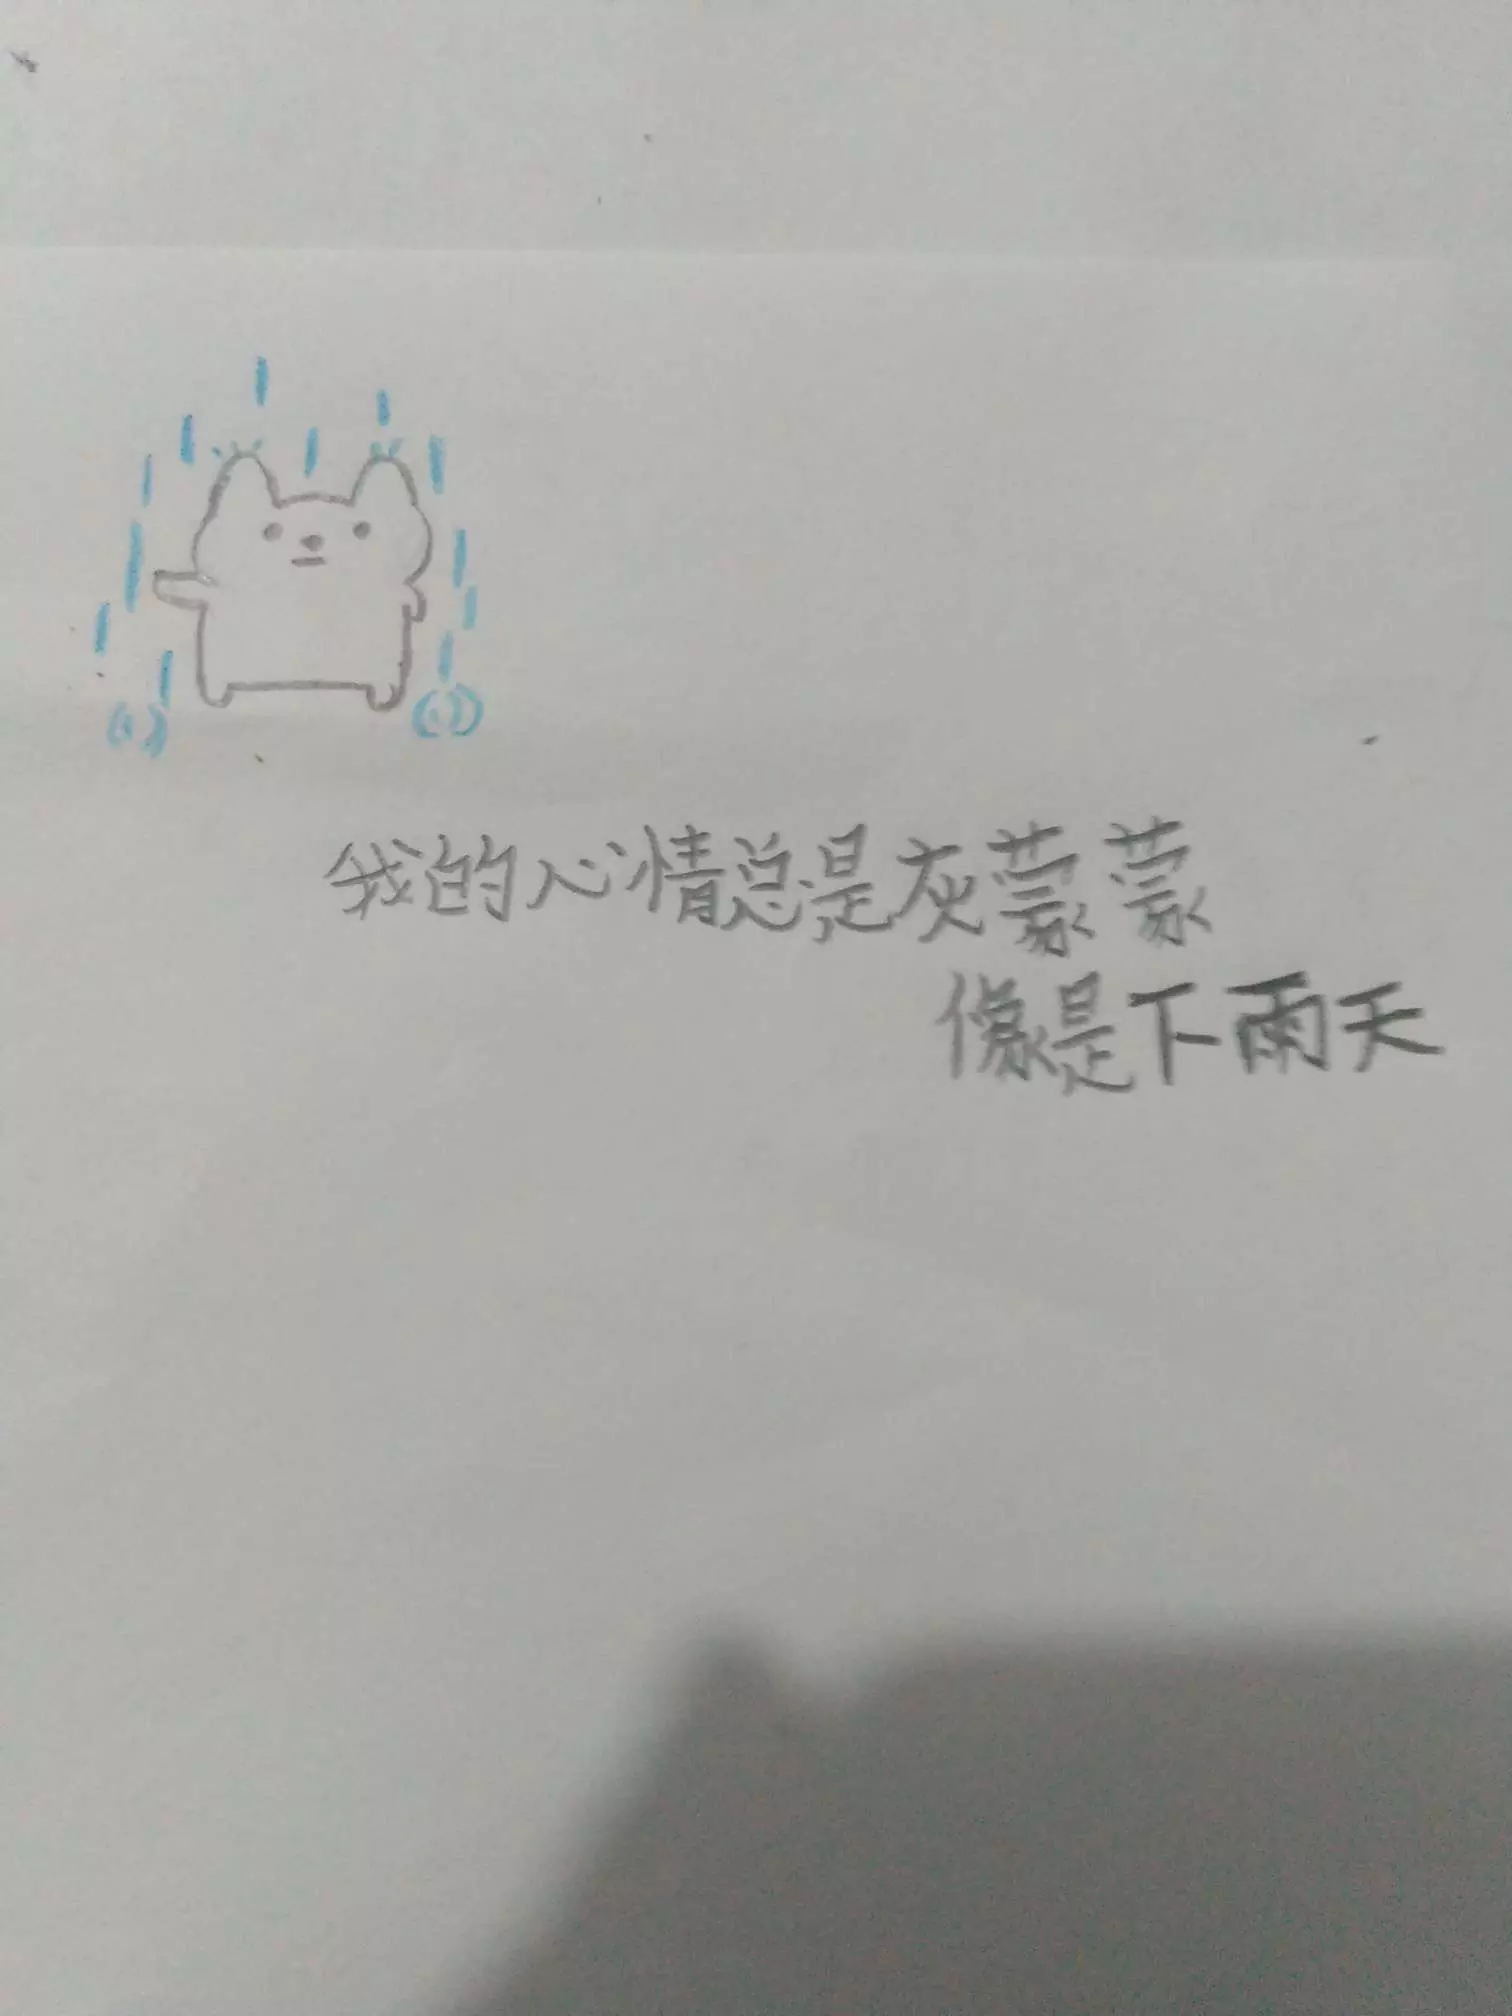 我的心情总是灰蒙蒙
像是下雨天